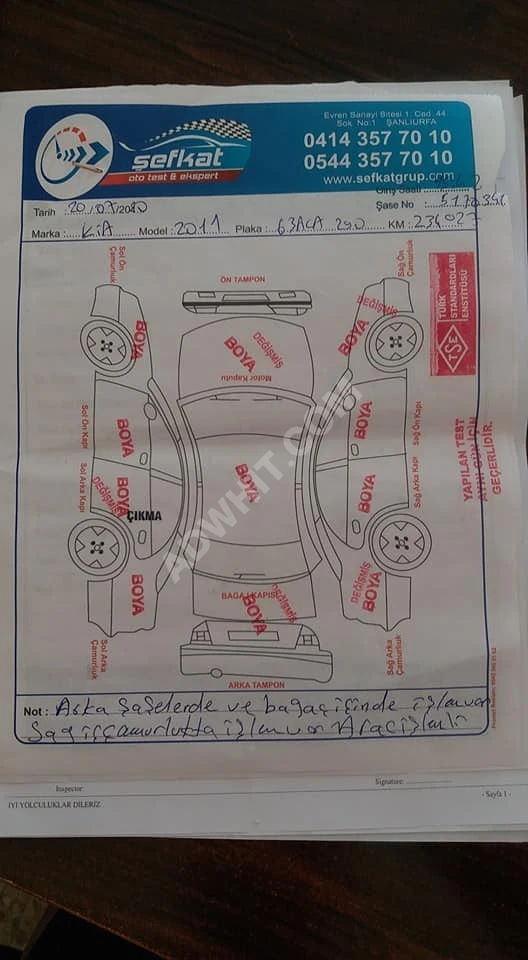 şefkat
oto test & ekspert
Evren Sanayi Sitesi 1. Cad. 44.
Sok. No:1 ŞANLIURFA
0414 357 70 10
0544 357 70 10
www.sefkatgrup.com
Giriş Saati
Tarih : 20/07/2020
Şase No :
Marka : KİA Model : 2011 Plaka : 63ACA 290 KM : 234027
Sol Ön
Çamurluk
ÖN TAMPON
Sağ Ön
Çamurluk
TSE
TÜRK
STANDARDLARI
ENSTİTÜSÜ
BOYA
BOYA
DEĞİŞMİŞ
Motor Kaputu
DEĞİŞMİŞ
BOYA
Sol Ön Kapı
BOYA
BOYA
Sağ Ön Kapı
YAPILAN TEST
AYNI GÜN İÇİN
GEÇERLİDİR.
Sol Arka Kapı
BOYA
DEĞİŞMİŞ
ÇIKMA
BOYA
BOYA
Sağ Arka Kapı
BOYA
BAGAJ KAPISI
BOYA
DEĞİŞMİŞ
DEĞİŞMİŞ
BOYA
Sol Arka
Çamurluk
ARKA TAMPON
Sağ Arka
Çamurluk
Not : Arka Şaselerde ve bagaj içinde işlem var
Sağ iç çamurlukta işlem var Araç işlemli
Inspector:
Signature:
İYİ YOLCULUKLAR DİLERİZ
- Sayfa 1 -
ADWHIT.COM